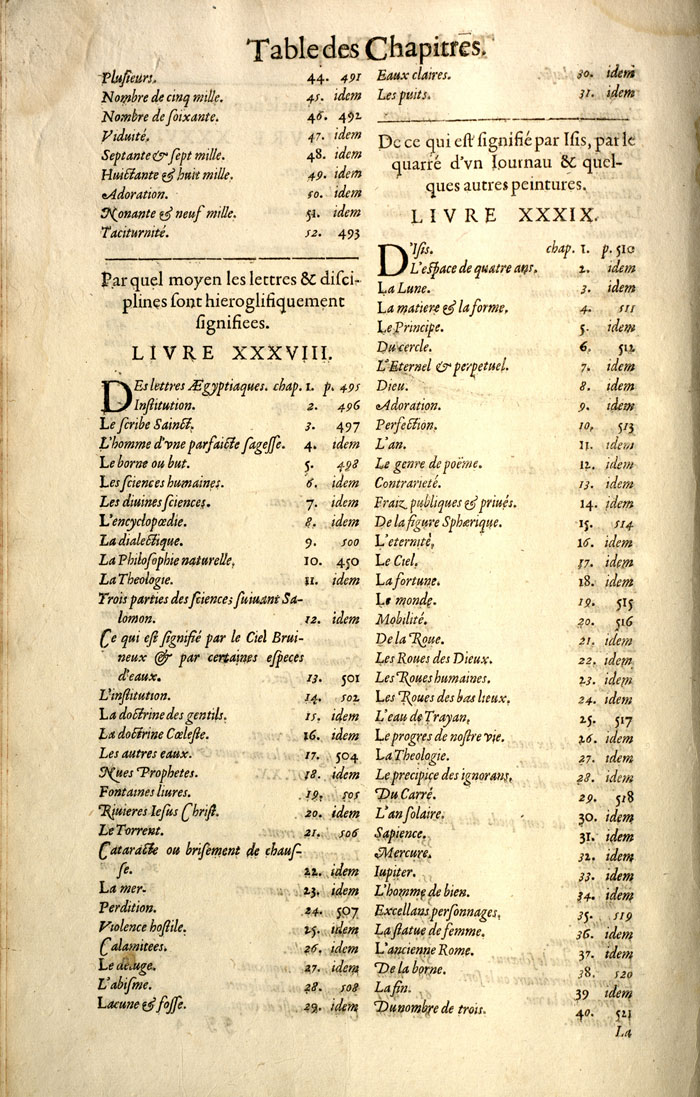 Table des Chapitres.
Plusieurs. 44. 491
Nombre de cinq mille. 45. idem
Nombre de soixante. 46. 492
Viduité. 47. idem
Septante & sept mille. 48. idem
Huictante & huit mille. 49. idem
Adoration. 50. idem
Nonante & neuf mille. 51. idem
Taciturnité. 52. 493
Par quel moyen les lettres & disci-
plines sont hieroglifiquement
signifiees.
LIVRE XXXVIII.
DEs lettres Ægyptiaques. chap. 1. p. 495
Institution. 2. 496
Le scribe Sainct. 3. 497
L'homme d'vne parfaicte sagesse. 4. idem
Le borne ou but. 5. 498
Les sciences humaines. 6. idem
Les diuines sciences. 7. idem
L'encyclopœdie. 8. idem
La dialectique. 9. 500
La Philosophie naturelle. 10. 450
La Theologie. 11. idem
Trois parties des sciences suiuant Sa-
lomon. 12. idem
Ce qui est signifié par le Ciel Brui-
neux & par certaines especes
d'eaux. 13. 501
L'institution. 14. 502
La doctrine des gentils. 15. idem
La doctrine Cœleste. 16. idem
Les autres eaux. 17. 504
Nues Prophetes. 18. idem
Fontaines liures. 19. 505
Riuieres Iesus Christ. 20. idem
Le Torrent. 21. 506
Cataracte ou brisement de chaus-
se. 22. idem
La mer. 23. idem
Perdition. 24. 507
Violence hostile. 25. idem
Calamitees. 26. idem
Le deluge. 27. idem
L'abisme. 28. 508
Lacune & fosse. 29. idem
Eaux claires. 30. idem
Les puits. 31. idem
De ce qui est signifié par Isis, par le
quarré d'vn Iournau & quel-
ques autres peintures.
LIVRE XXXIX.
D'Isis. chap. 1. p. 510
L'espace de quatre ans. 2. idem
La Lune. 3. idem
La matiere & la forme. 4. 511
Le Principe. 5. idem
Du cercle. 6. 512
L'Eternel & perpetuel. 7. idem
Dieu. 8. idem
Adoration. 9. idem
Perfection. 10. 513
L'an. 11. idem
Le genre de poëme. 12. idem
Contrarieté. 13. idem
Fraiz publiques & priués. 14. idem
De la figure Sphærique. 15. 514
L'eternité. 16. idem
Le Ciel. 17. idem
La fortune. 18. idem
Le monde. 19. 515
Mobilité. 20. 516
De la Roue. 21. idem
Les Roues des Dieux. 22. idem
Les Roues humaines. 23. idem
Les Roues des bas lieux. 24. idem
L'eau de Trayan. 25. 517
Le progres de nostre vie. 26. idem
La Theologie. 27. idem
Le precipice des ignorans. 28. idem
Du Carré. 29. 518
L'an solaire. 30. idem
Sapience. 31. idem
Mercure. 32. idem
Iupiter. 33. idem
L'homme de bien. 34. idem
Excellans personnages. 35. 519
La statue de femme. 36. idem
L'ancienne Rome. 37. idem
De la borne. 38. 520
La fin. 39 idem
Du nombre de trois. 40. 521
La